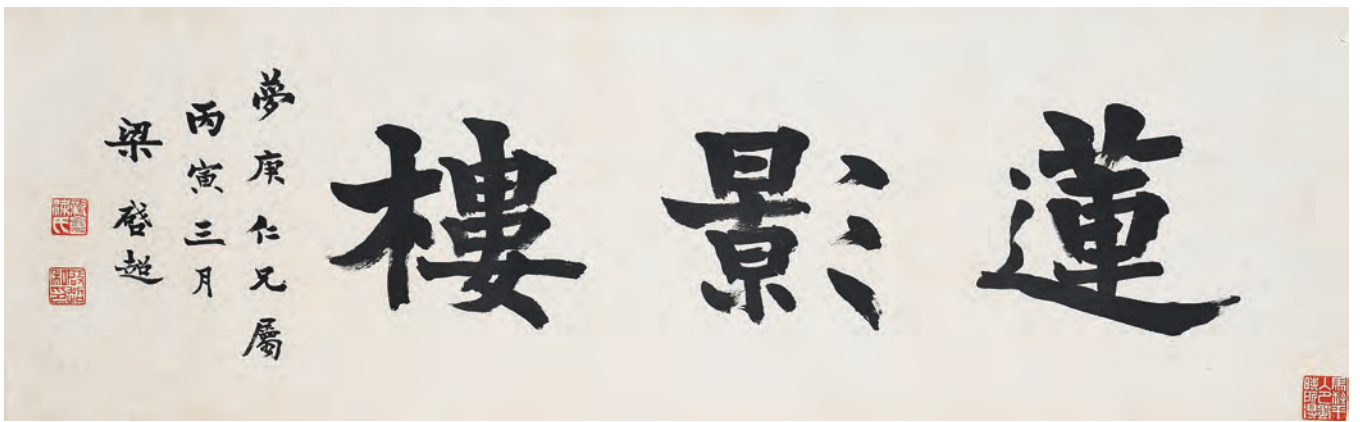 蓮影樓
夢庚仁兄屬
丙寅三月
梁啓超